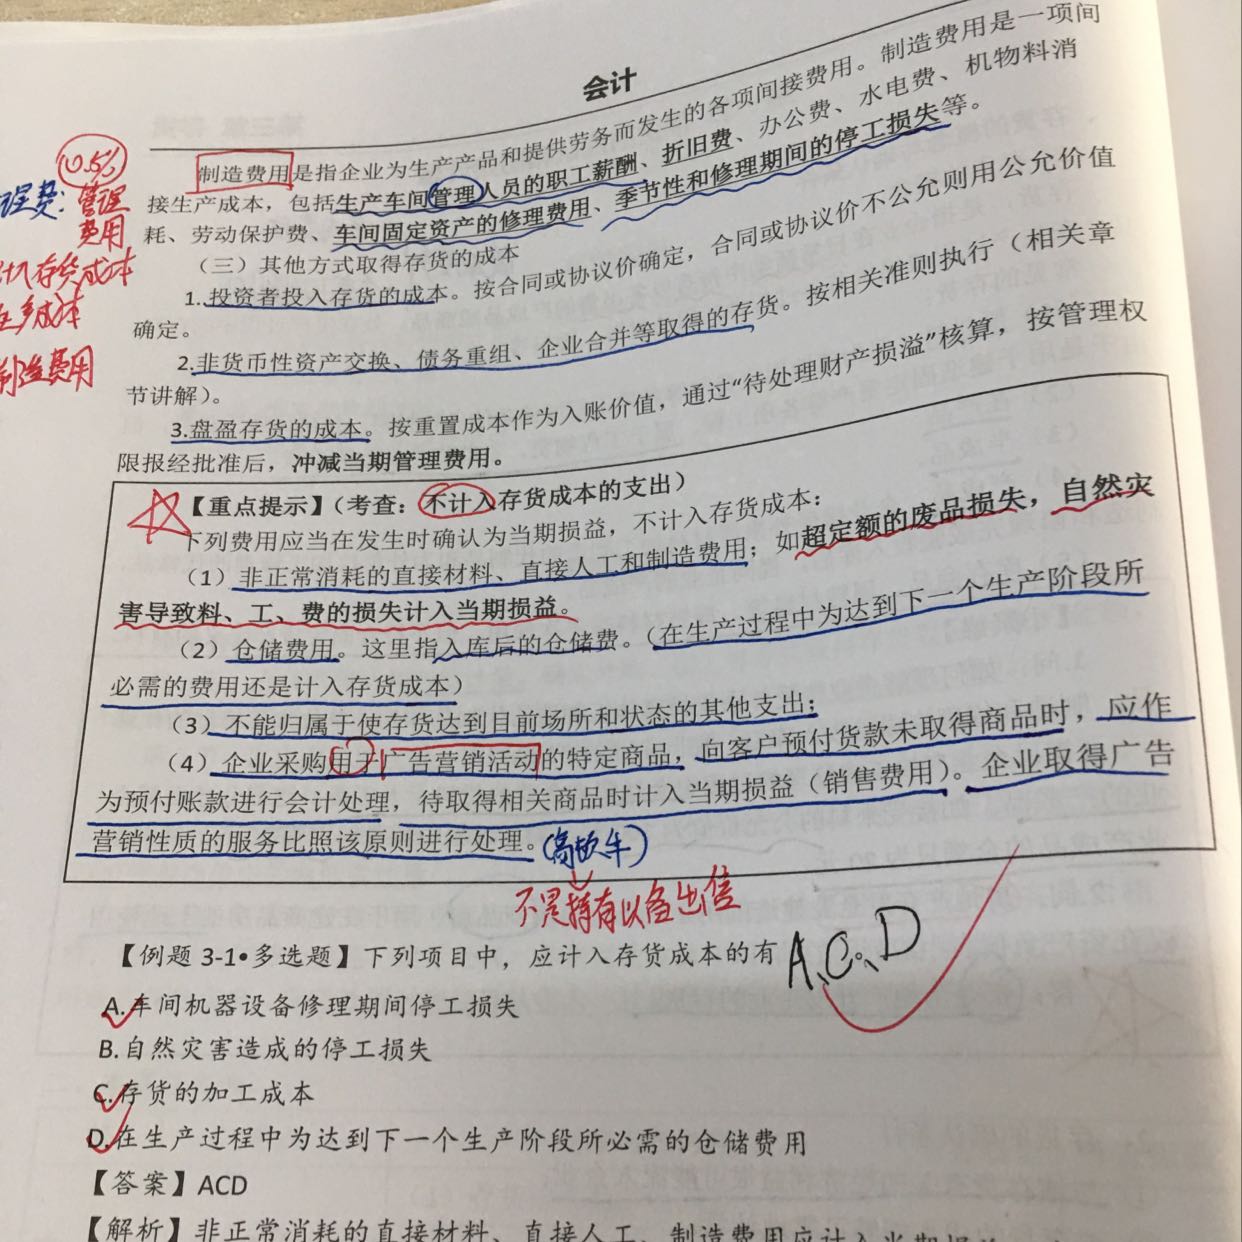 会计
制造费用是指企业为生产产品和提供劳务而发生的各项间接费用。制造费用是一项间
接生产成本，包括生产车间管理人员的职工薪酬、折旧费、办公费、水电费、机物料消
耗、劳动保护费、车间固定资产的修理费用、季节性和修理期间的停工损失等。
（三）其他方式取得存货的成本
1.投资者投入存货的成本。按合同或协议价确定，合同或协议价不公允则用公允价值
确定。
2.非货币性资产交换、债务重组、企业合并等取得的存货。按相关准则执行（相关章
节讲解）。
3.盘盈存货的成本。按重置成本作为入账价值，通过“待处理财产损溢”核算，按管理权
限报经批准后，冲减当期管理费用。
管理
费用
计入存货成本
生产成本
制造费用
【重点提示】（考查：不计入存货成本的支出）
下列费用应当在发生时确认为当期损益，不计入存货成本：
（1）非正常消耗的直接材料、直接人工和制造费用；如超定额的废品损失，自然灾
害导致料、工、费的损失计入当期损益。
（2）仓储费用。这里指入库后的仓储费。（在生产过程中为达到下一个生产阶段所
必需的费用还是计入存货成本）
（3）不能归属于使存货达到目前场所和状态的其他支出；
（4）企业采购用于广告营销活动的特定商品，向客户预付货款未取得商品时，应作
为预付账款进行会计处理，待取得相关商品时计入当期损益（销售费用）。企业取得广告
营销性质的服务比照该原则进行处理。
不是持有以备出售
【例题 3-1•多选题】下列项目中，应计入存货成本的有 A、C、D
A.车间机器设备修理期间停工损失
B.自然灾害造成的停工损失
C.存货的加工成本
D.在生产过程中为达到下一个生产阶段所必需的仓储费用
【答案】ACD
【解析】非正常消耗的直接材料、直接人工、制造费用应计入当期损